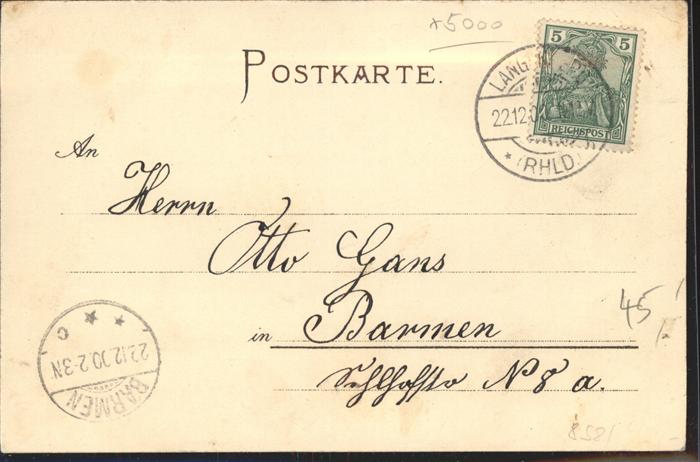 x5000
5 5
REICHSPOST
22.12.0
* (RHLD.)
POSTKARTE.
An
Herrn
Otto Gans
in Barmen
N 8 a.
45
BARMEN
22.12.00.2-3N
* * C
8581